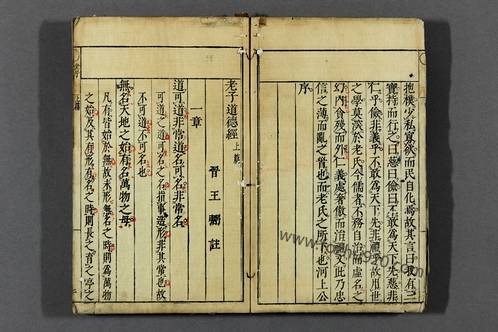 抱樸少私寡欲而民自化焉故其言曰我有三
寶持而行之曰慈曰儉曰不敢為天下先慈非
仁乎儉非義乎不敢為天下先非禮乎故用世
之學莫深於老氏今儒者不務自治而虛名之
幻內貪殘而外仁義處奢傲而治禮文此乃忠
信之薄而亂之首也而老氏之所下也河上公
序
老子道德經 上篇
晉 王弼註
一章
道可道非常道名可名非常名
可道之道可名之名指事造形非其常也故
不可道不可名也
無名天地之始有名萬物之母
凡有皆始於無故未形無名之時則為萬物
之始及其有形有名之時則長之育之亭之